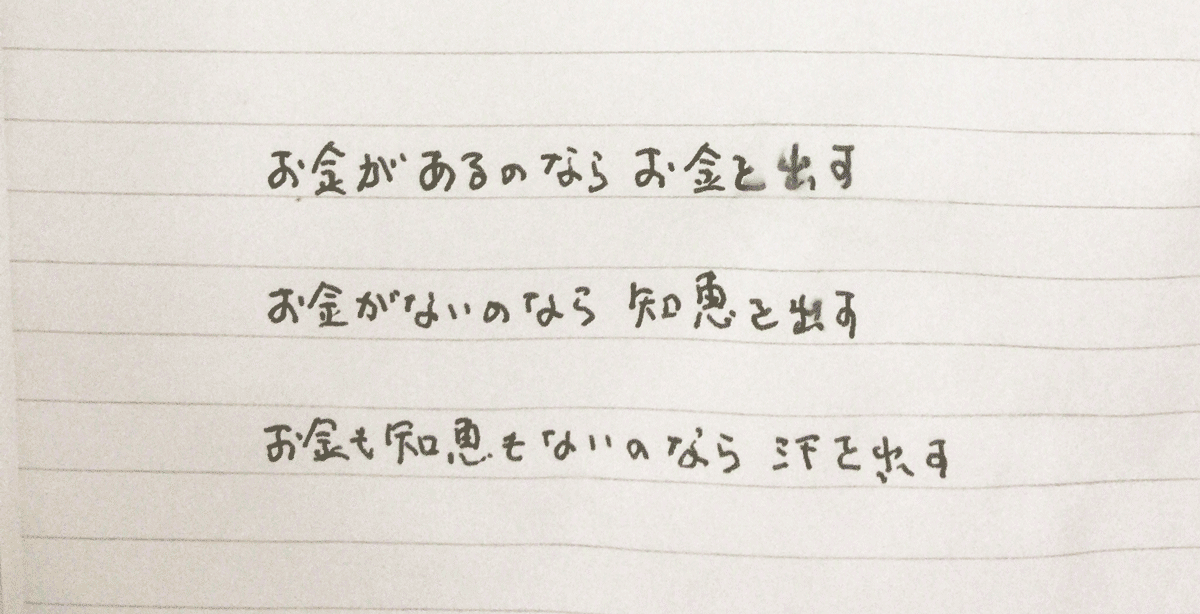 お金があるのなら お金を出す
お金がないのなら 知恵を出す
お金も知恵もないのなら 汗を出す